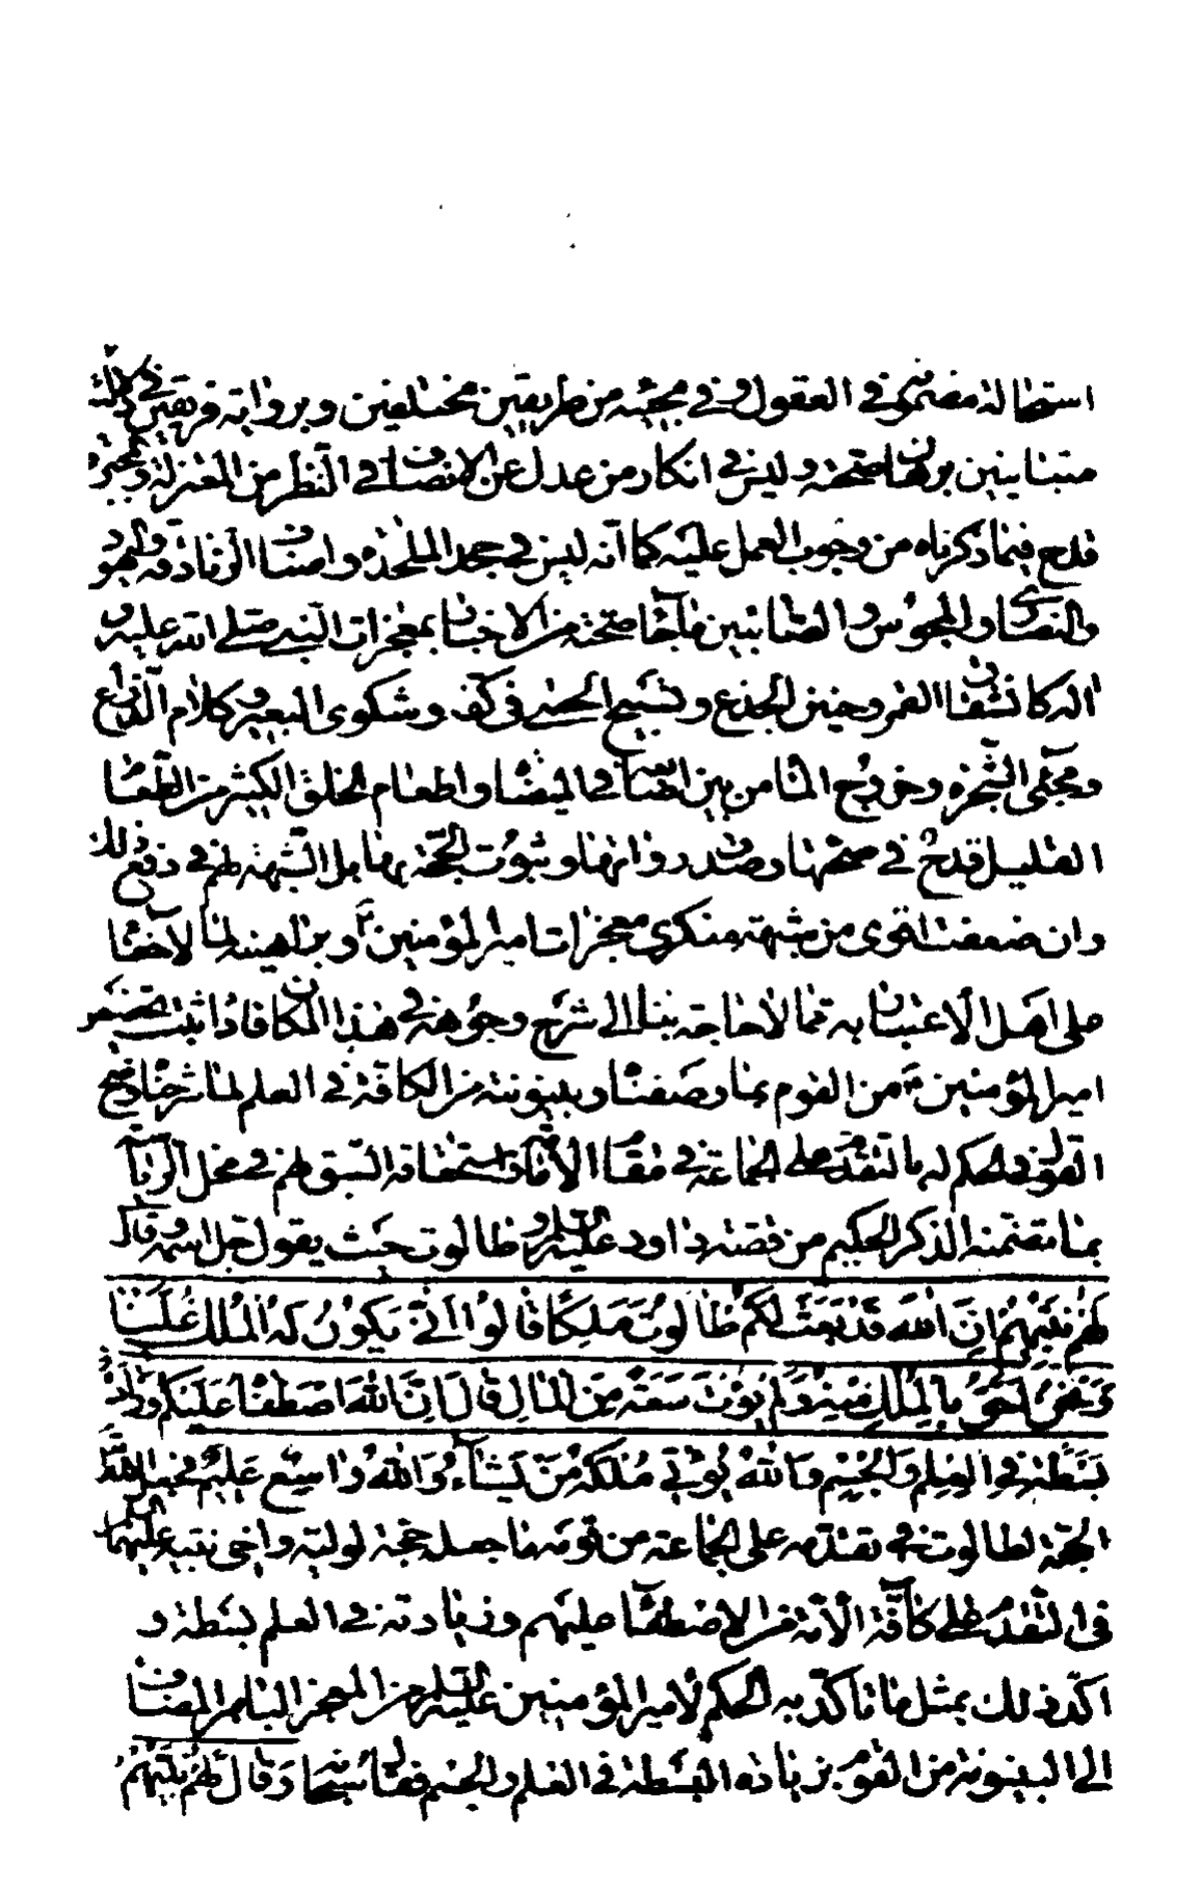 استحالة مضمونه في العقول وفي مجيئه من طريقين مختلفين وبرواية فريقين في دلالته
متباينين برهان صحته وليس في انكار من عدل عن الانصاف في النظر من المعتزلة والمجبرة
قدح فيما ذكرناه من وجوب العمل عليه كما انه ليس في جحد الملحدة واصناف الزنادقة واليهود
والنصارى والمجوس والصابئين ما جاء صحته من الاخبار بمعجزات النبي صلى الله عليه و
اله كانشقاق القمر وحنين الجذع وتسبيح الحصى في كفه وشكوى البعير وكلام الذراع
ومجئ الشجرة وخروج الماء من بين اصابعه في الميضاة واطعام الخلق الكثير من الطعام
القليل قدح في صحتها وصدق رواتها وثبوت الحجة بها بل الشبهة لهم في دفع ذلك
وان ضعفت اقوى من شبهة منكري معجزات امير المؤمنين ع وبراهينه لما لاخفاء
على اهل الاعتبار به مما لا حاجة بنا الى شرح وجوهه في هذا المكان فاذا ثبت تخصص
امير المؤمنين ع من القوم بما وصفناه وبينونته من الكافة في العلم لما شرحناه وضح
القول في الحكم له بالتقدم على الجماعة في مقام الامامة واستحقاقه السبق لهم في محل الرياسة
بما تضمنه الذكر الحكيم من قصة داود عليه السلام وطالوت حيث يقول جل اسمه وقال
لَهُمْ نَبِيُّهُمْ إِنَّ اللهَ قَدْ بَعَثَ لَكُمْ طَالُوتَ مَلِكًا قَالُوا أَنَّى يَكُونُ لَهُ الْمُلْكُ عَلَيْنَا
وَنَحْنُ أَحَقُّ بِالْمُلْكِ مِنْهُ وَلَمْ يُؤْتَ سَعَةً مِنَ الْمَالِ قَالَ إِنَّ اللهَ اصْطَفَاهُ عَلَيْكُمْ وَزَادَهُ
بَسْطَةً فِي الْعِلْمِ وَالْجِسْمِ وَاللهُ يُؤْتِي مُلْكَهُ مَنْ يَشَاءُ وَاللهُ وَاسِعٌ عَلِيمٌ فجعل الله
الحجة لطالوت في تقدمه على الجماعة من قومه ما جعله حجة لوليه واخي نبيه عليهما السلام
في التقدم على كافة الامة من الاصطفاء عليهم وزيادته في العلم بسطة و
اكد ذلك بمثل ما تاكد به الحكم لامير المؤمنين عليه السلام من المعجز الباهر المضاف
الى البينونة من القوم بزيادة البسطة في العلم والجسم فقال سبحانه وَقَالَ لَهُمْ نَبِيُّهُمْ